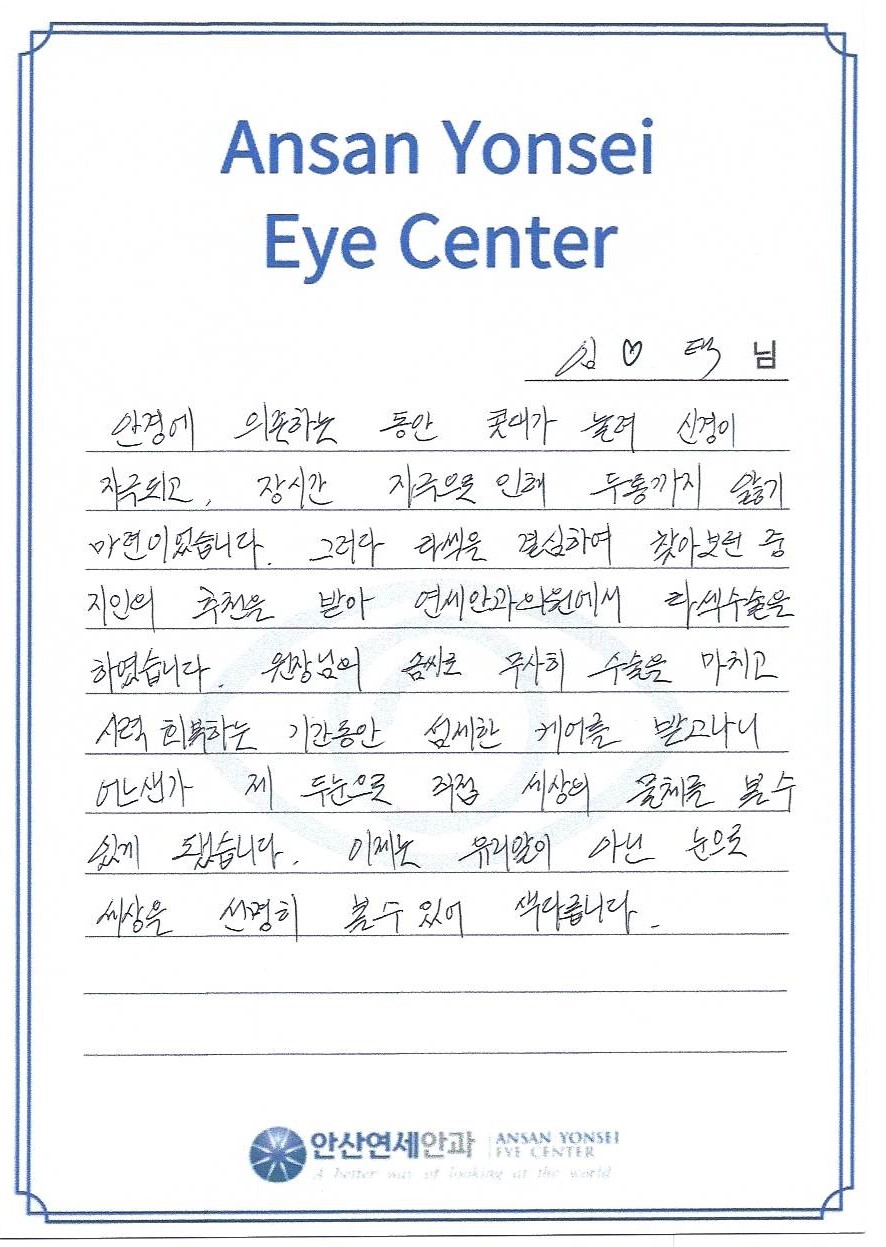 Ansan Yonsei
Eye Center
심 ♡ 택 님
안경에 의존하는 동안 콧대가 눌려 신경이
자극되고, 장시간 자극으로 인해 두통까지 앓기
마련이었습니다. 그러다 라섹을 결심하여 찾아보던 중
지인의 추천을 받아 연세안과의원에서 라섹수술을
하였습니다. 원장님의 솜씨로 무사히 수술을 마치고
시력 회복하는 기간동안 섬세한 케어를 받고나니
어느샌가 제 두눈으로 직접 세상의 물체를 볼 수
있게 됐습니다. 이제는 유리알이 아닌 눈으로
세상을 선명히 볼 수 있어 색다릅니다.
안산연세안과 ANSAN YONSEI
EYE CENTER
A better way of looking at the world